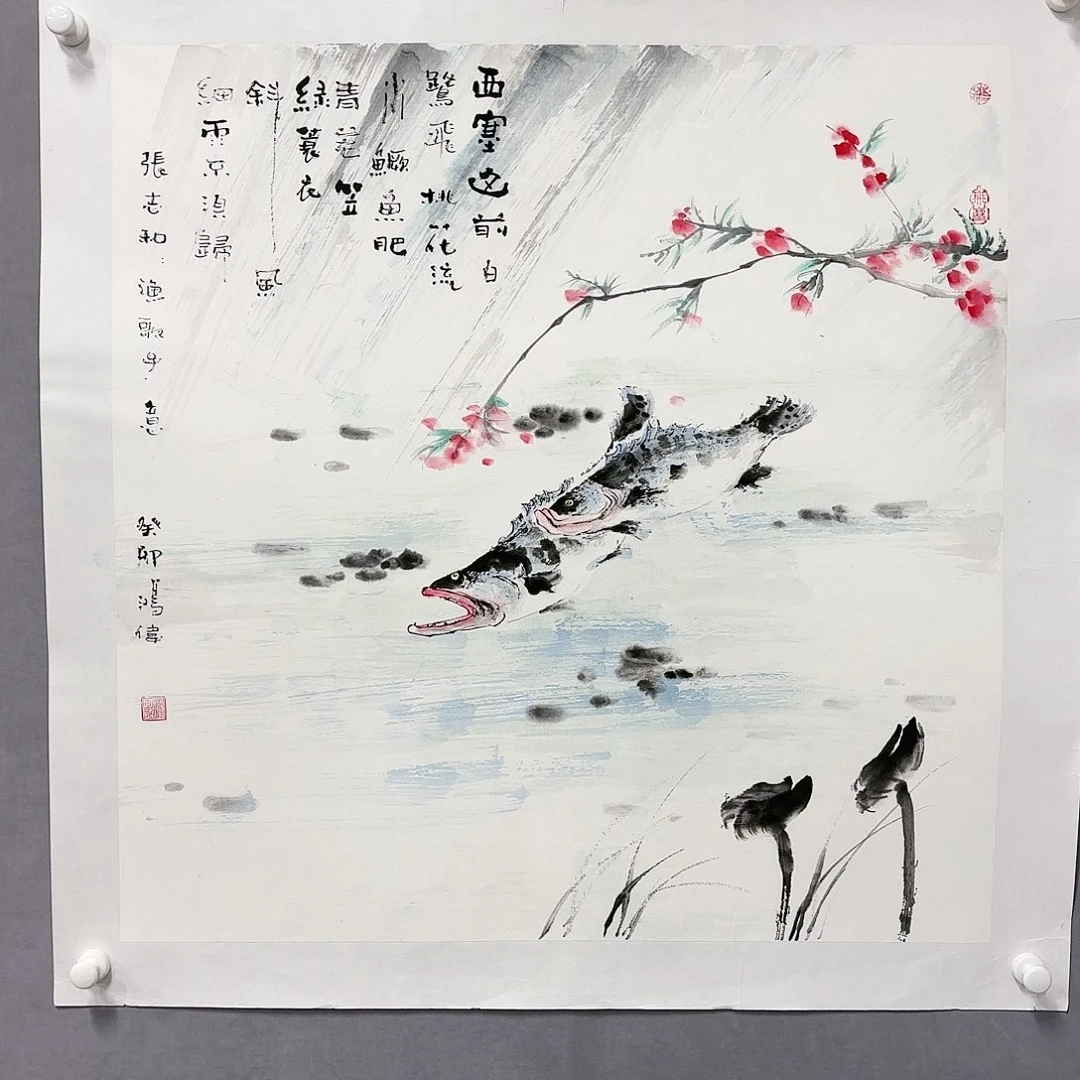 西塞山前白
鷺飛桃花流
水鱖魚肥
青箬笠
綠蓑衣
斜風
細雨不須歸
張志和：漁歌子·意 癸卯鴻偉